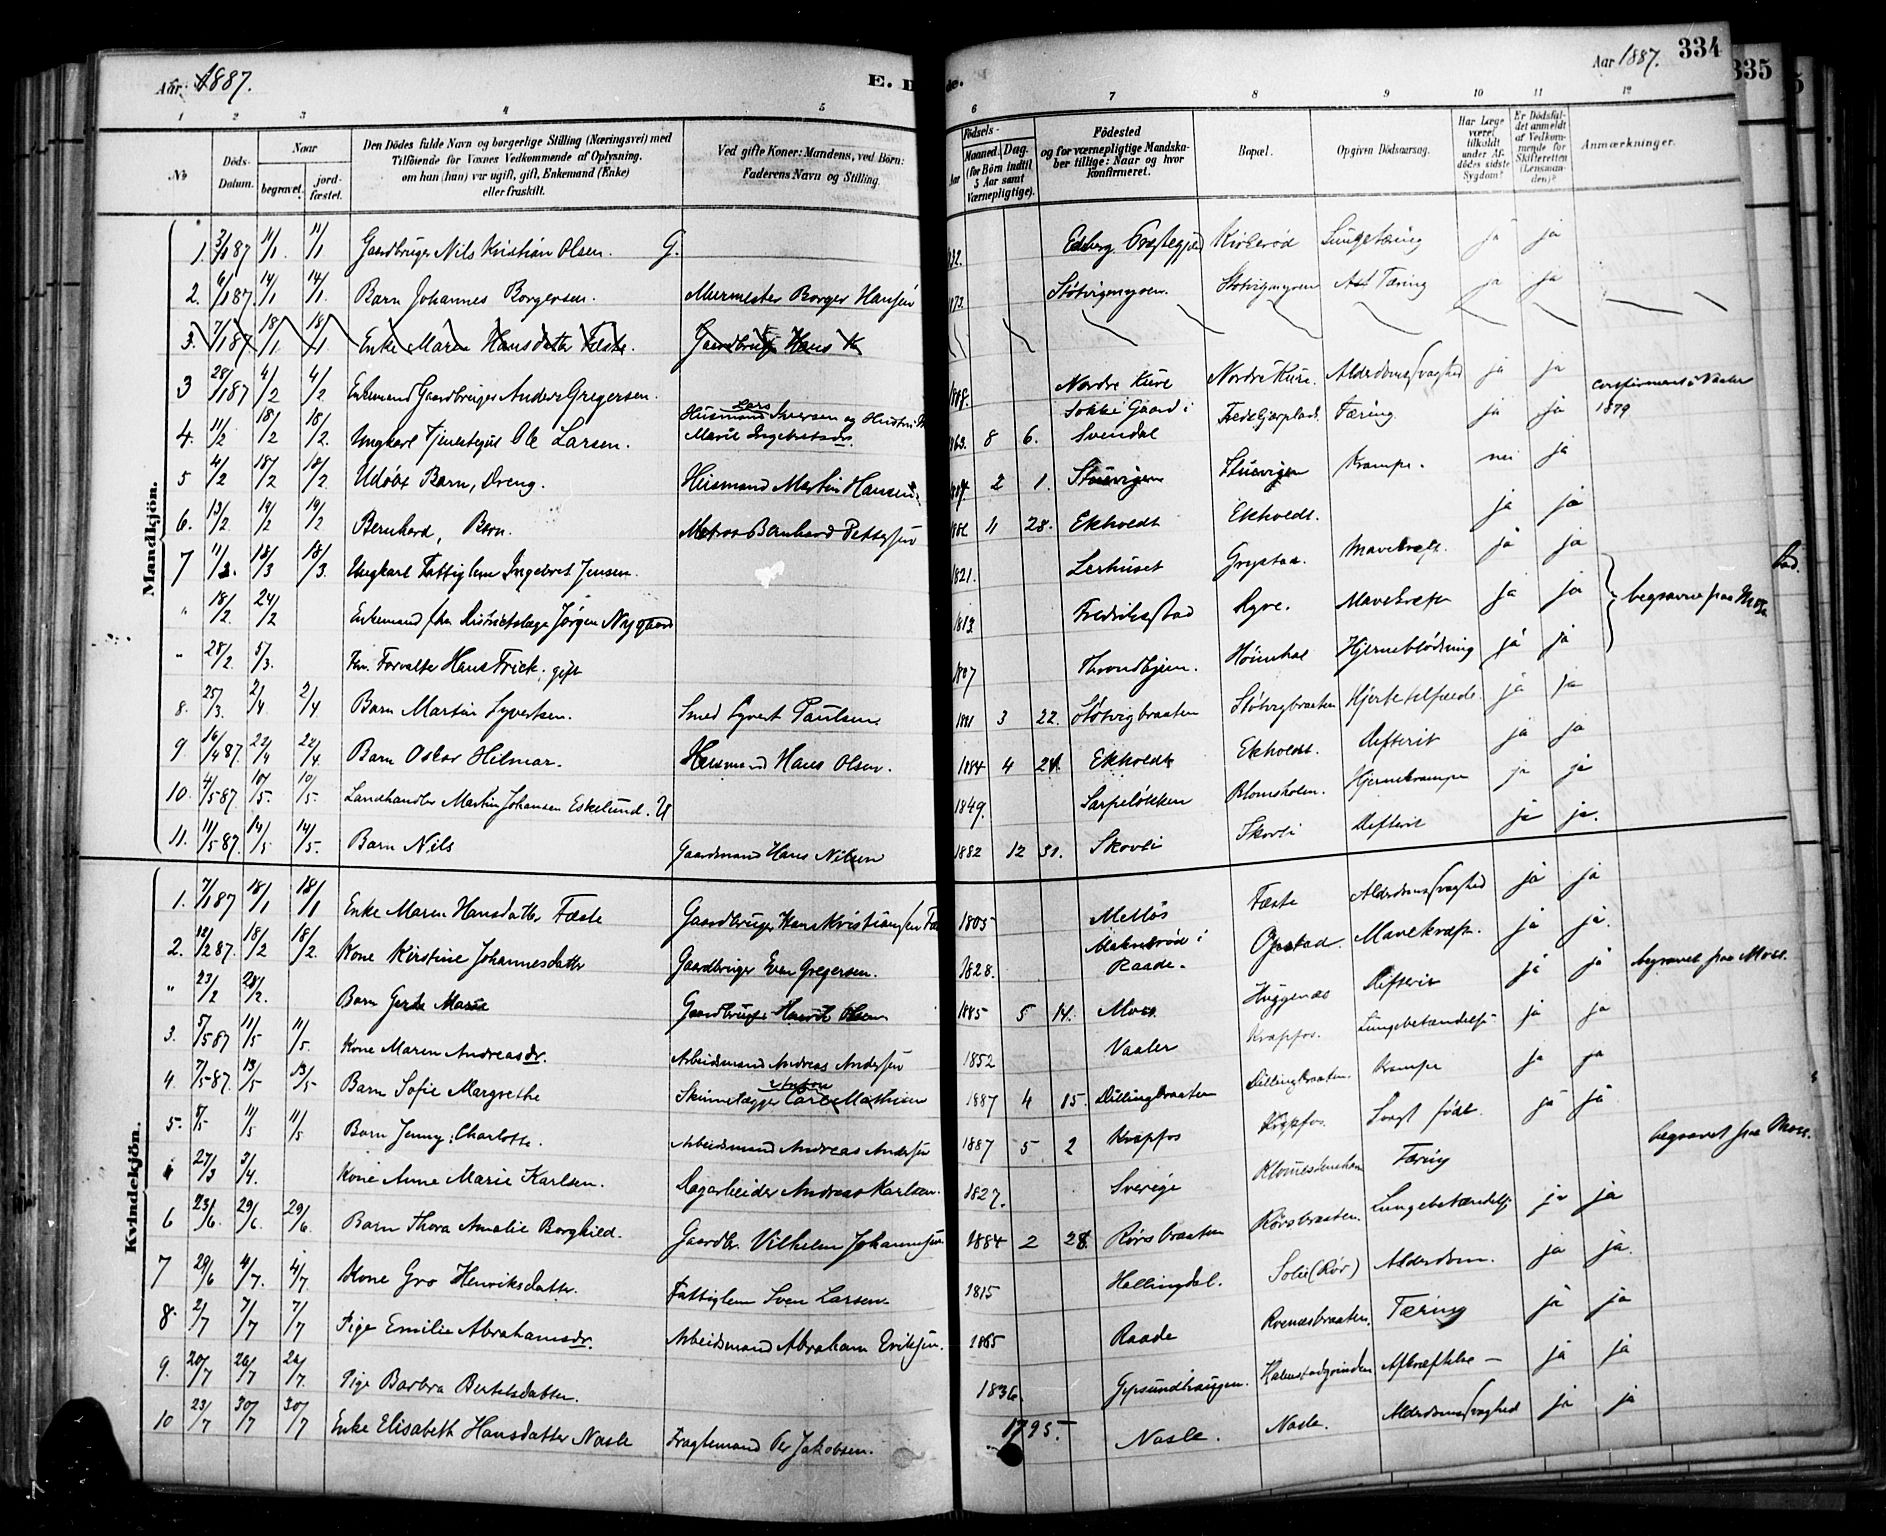 Aar 1887. E. D
de. Aar 1887. 334
335
1 2 3 4 5 6 7 8 9 10 11 12
No
Döds-Datum.
Naar
begravet. jord-fæstet.
Den Dödes fulde Navn og borgerlige Stilling (Næringsvei) med
Tilföiende for Voxnes Vedkommende af Oplysning,
om han (hun) var ugift, gift, Enkemand (Enke)
eller fraskilt.
Ved gifte Koner: Mandens, ved Börn:
Faderens Navn og Stilling.
Födsels-
Aar Maaned. Dag.
(for Börn indtil
5 Aar samt
Værnepligtige).
Födested
og for værnepligtige Mandska-
ber tillige: Naar og hvor
konfirmeret.
Bopæl.
Opgiven Dödsaarsag.
Har Læge
været
tilkaldt
under Af-
dödes sidste
Sygdom?
Er Dödsfal-
det anmeldt
af Vedkom-
mende for
Skifteretten
(Lensman-
den)?
Anmærkninger.
Mandkjön.
1. 3/1 87 11/1. 11/1 Gaardbruger Nils Kristian Olsen. G. 832. Edsberg Præstegjeld Kirkerød Lungetæring ja ja
2. 6/1 87. 14/1 14/1. Barn Johannes Borgersen. Murmester Borger Hansen 1873. Støtvigmyren. Støtvigmyren Tæring ja ja
3. 7/1 87 18/1 18/1. Enke Maren Hansdatter Fæste. Gaardbruger Hans K
3 28/1 87 4/2 4/2 Enkemand Gaardbruger Anders Gregersen. 1808. Nordre Kure Nordre Kure. Alderdomssvaghed ja ja
4. 11/2 18/2 18/2. Ungkarl Tjenestegut Ole Larsen. Husmand Lars Iversen og Hustru Marie Ingebretsdr. 1863. 8 6. Gaard i Svendal Tæring. ja ja confirmeret i Vaaler 1879
5 4/2 18/2 18/2 Udøbt Barn, Dreng. Husmand Martin Hansen. 1887. 2 1. Støtvigen Støtvigen Krampe. nei ja
6. 13/2 19/2 19/2 Bernhard, Barn. Matros Bernhard Pettersen 11 28. Ekholdt Ekholdt. ja ja
7 11/3. 18/3 18/3. Ungkarl Fattiglem Ingebret Jensen. 1821. Lerhuset Grystad. Mavekræft. ja ja
" 18/2. 24/2 Enkemand fhv. Distriktslæge Jørgen Nygaard 1813. Fredrikstad Ryve. Mavekræft ja ja begravne fra Moss
" 28/2. 5/3. Fhv. Forvalter Hans Frick. gift 1807 Throndhjem. Hjerneblødning ja ja
8. 25/3. 2/4 2/4 Barn Martin Syvertsen. Smed Syvert Paulsen 1881 3 22. Støtvigbraaten Støtvigbraaten Hjertetilfælde. ja ja
9. 16/4 87. 22/4 22/4. Barn Oskar Hilmar. Husmand Hans Olsen. 1884 4 24. Ekholdt Ekholdt. Difterit ja ja
10. 4/5 87 10/5. 10/5. Landhandler Martin Johansen Eskelund. U 1849. Sarpeløkken Blomsholm. Hjernekrampe ja ja
11. 11/5 87. 14/5 14/5. Barn Nils Gaardmand Hans Nilsen 1882 12 31. Skovli Skovli Difterit ja ja.
Kvindekjön.
1. 7/1 87 18/1 18/1 Enke Maren Hansdatter Fæste Gaardbruger Hans Kristiansen Fæ 1805 Melløs Fæste Alderdomssvaghed ja ja
2. 12/2 87. 18/2 18/2. Kone Kirstine Johannesdatter Gaardbruger Even Gregersen. 1828. i Raade. Opstad. Mavekræft. ja ja.
" 23/2 28/2. Barn Gerda Marie Gaardbruger Henrik Olsen 1885 5 14. Moss. Huggenæs Difterit ja ja begravet fra Moss.
3. 5/5 87 11/5 11/5. Kone Maren Andreasdr. Arbeidsmand Andreas Andersen 1852 Vaaler Krapfos. Lungebetændelse ja ja
4. 7/5 87. 13/5 13/5 Barn Sofie Margrethe Skinnelægger Anton Carl Mathisen 1887 4 15. Dillingbraaten Dillingbraaten. Krampe ja ja
5. 8/5 11/5 11/5 Barn Jenny Charlotte. Arbeidsmand Andreas Andersen 1887 5 2 Krapfos Krapfos. Svagt født. ja ja
" 27/3 3/4. Kone Anne Marie Karlsen. Sagarbeider Andreas Karlsen. 1827. Sverige Tæring begravet fra Moss.
6 23/6. 29/6. 29/6. Barn Thora Amalie Borghild. Gaardbr. Vilhelm Johannesen 1884 2 28. Rørsbraaten Rørsbraaten. Lungebetændelse ja ja
7 29/6 4/7. 4/7 Kone Gro Henriksdatter. Fattiglem Sven Larsen 1815 Hallingdal. Solie (Rør) Alderdom. ja ja.
8. 2/7 7/7 7/7 Pige Emilie Abrahamsdr. Arbeidsmand Abraham Eriksen. 1865 Raade Rosnæsbraaten. Tæring ja ja
9. 20/7 26/7 26/7. Pige Barbra Bertelsdatter. 1836 Gipsundhaugen. Halmstadgrinden Afkræftelse — ja ja
10 23/7 30/7 30/7 Enke Elisabeth Hansdatter Nasle Fragtemand Per Jakobsen. 1795. Nasle. Nasle. Alderdomssvaghed ja ja